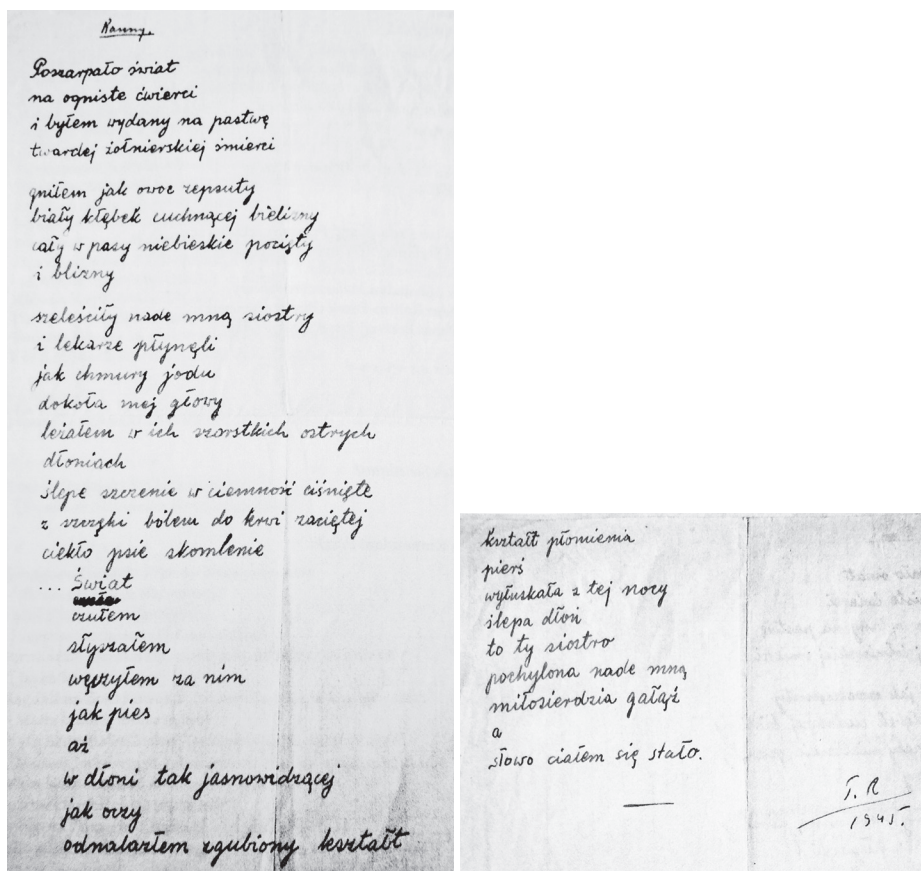 Ranny.
Poszarpało świat
na ogniste ćwierci
i byłem wydany na pastwę
twardej żołnierskiej śmierci
gniłem jak owoc zepsuty
biały kłębek cuchnącej bielizny
cały w pasy niebieskie pocięty
i blizny
szeleściły nade mną siostry
i lekarze płynęli
jak chmury jodu
dokoła mej głowy
leżałem w ich szorstkich ostrych
dłoniach
ślepe szczenie w ciemność ciśnięte
z szczęki bólem do krwi zaciętej
ciekło psie skomlenie
... Świat
czułem
słyszałem
węszyłem za nim
jak pies
aż
w dłoni tak jasnowidzącej
jak oczy
odnalazłem zgubiony kształt
kształt płomienia
pierś
wyłuskała z tej nocy
ślepa dłoń
to ty siostro
pochylona nade mną
miłosierdzia gałąź
a
słowo ciałem się stało.
T. R
1945.